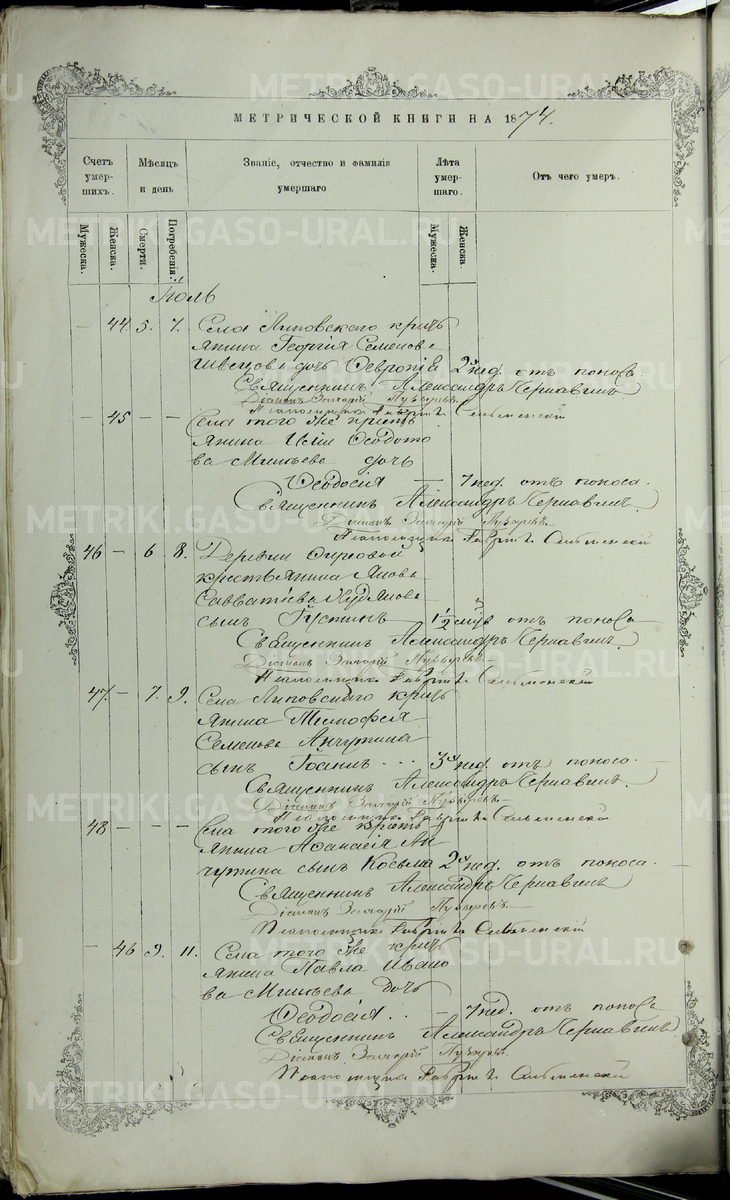 МЕТРИЧЕСКОЙ КНИГИ НА 1874.
Счетъ умер- шихъ.
Мѣсяцъ и день
Званіе, отчество и фамилія умершаго.
Лѣта умер- шаго.
Отъ чего умеръ.
Мужеска.
Женска.
Смерти.
Погребенія.
Мужеска.
Женска
Іюль
— 44 5. 7. Села Липовскаго кресть
янина Георгія Семенова
Швецова дочь Февронія 2 нед. отъ поноса
Священникъ Александръ Чернавинъ
Діаконъ Захарій Пузыревъ.
Псаломщикъ Гавріилъ
— 45 — — Села того же кресть
янина Ісіи Ѳедото
ва Минѣева дочь
Ѳеодосія — 7 нед. отъ поноса.
Священникъ Александръ Чернавинъ.
Діаконъ Захарій Пузыревъ
Псаломщикъ Гавріилъ
46 — 6 8. Деревни
крестьянина Якова
Савватіева Худякова
сынъ Іустинъ 1 1/2 мѣс. отъ поноса
Священникъ Александръ Чернавинъ.
Діаконъ Захарій Пузыревъ
Псаломщикъ Гавріилъ
47. — 7. 9. Села Липовскаго кресть
янина Тимофея
Семенова Анчутина
сынъ Іоаннъ ... 3 нед. отъ поноса.
Священникъ Александръ Чернавинъ.
Діаконъ Захарій Пузыревъ
Псаломщикъ Гавріилъ
48 — — — Села того же кресть
янина Аѳанасія Ан
чутина сынъ Косьма 2 нед. отъ поноса.
Священникъ Александръ Чернавинъ
Діаконъ Захарій Пузыревъ
Псаломщикъ Гавріилъ
— 46 9. 11. Села того же кресть
янина Павла Ивано
ва Минѣева дочь
Ѳеодосія .. — 7 нед. отъ поноса
Священникъ Александръ Чернавинъ
Діаконъ Захарій Пузыревъ.
Псаломщикъ Гавріилъ
METRIKI.GASO-URAL.RU